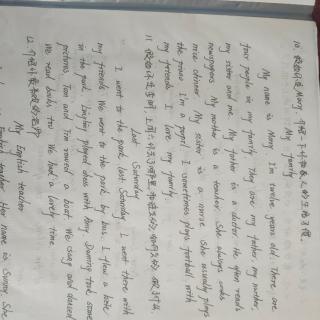 10. 假如你是Mary, 介绍一下你和家人的生活习惯。
My family
My name is Mary. I'm twelve years old. There are
four people in my family. They are my father, my mother,
my sister and me. My father is a doctor. He often reads
newspapers. My mother is a teacher. She always cooks
nice dinner. My sister is a nurse. She usually plays
the piano. I'm a pupil. I sometimes plays football with
my friends. I love my family.
11.
Last Saturday
I went to the park last Saturday. I went there with
my friends. We went to the park by bus. I flew a kite
in the park. Lingling played chess with Amy. Daming took some
pictures. Tom and Tim rowed a boat. We sang and danced.
We read books, too. We had a lovely time.
12. 介绍你最
My English teacher
English teacher. Her name is Sunny. She